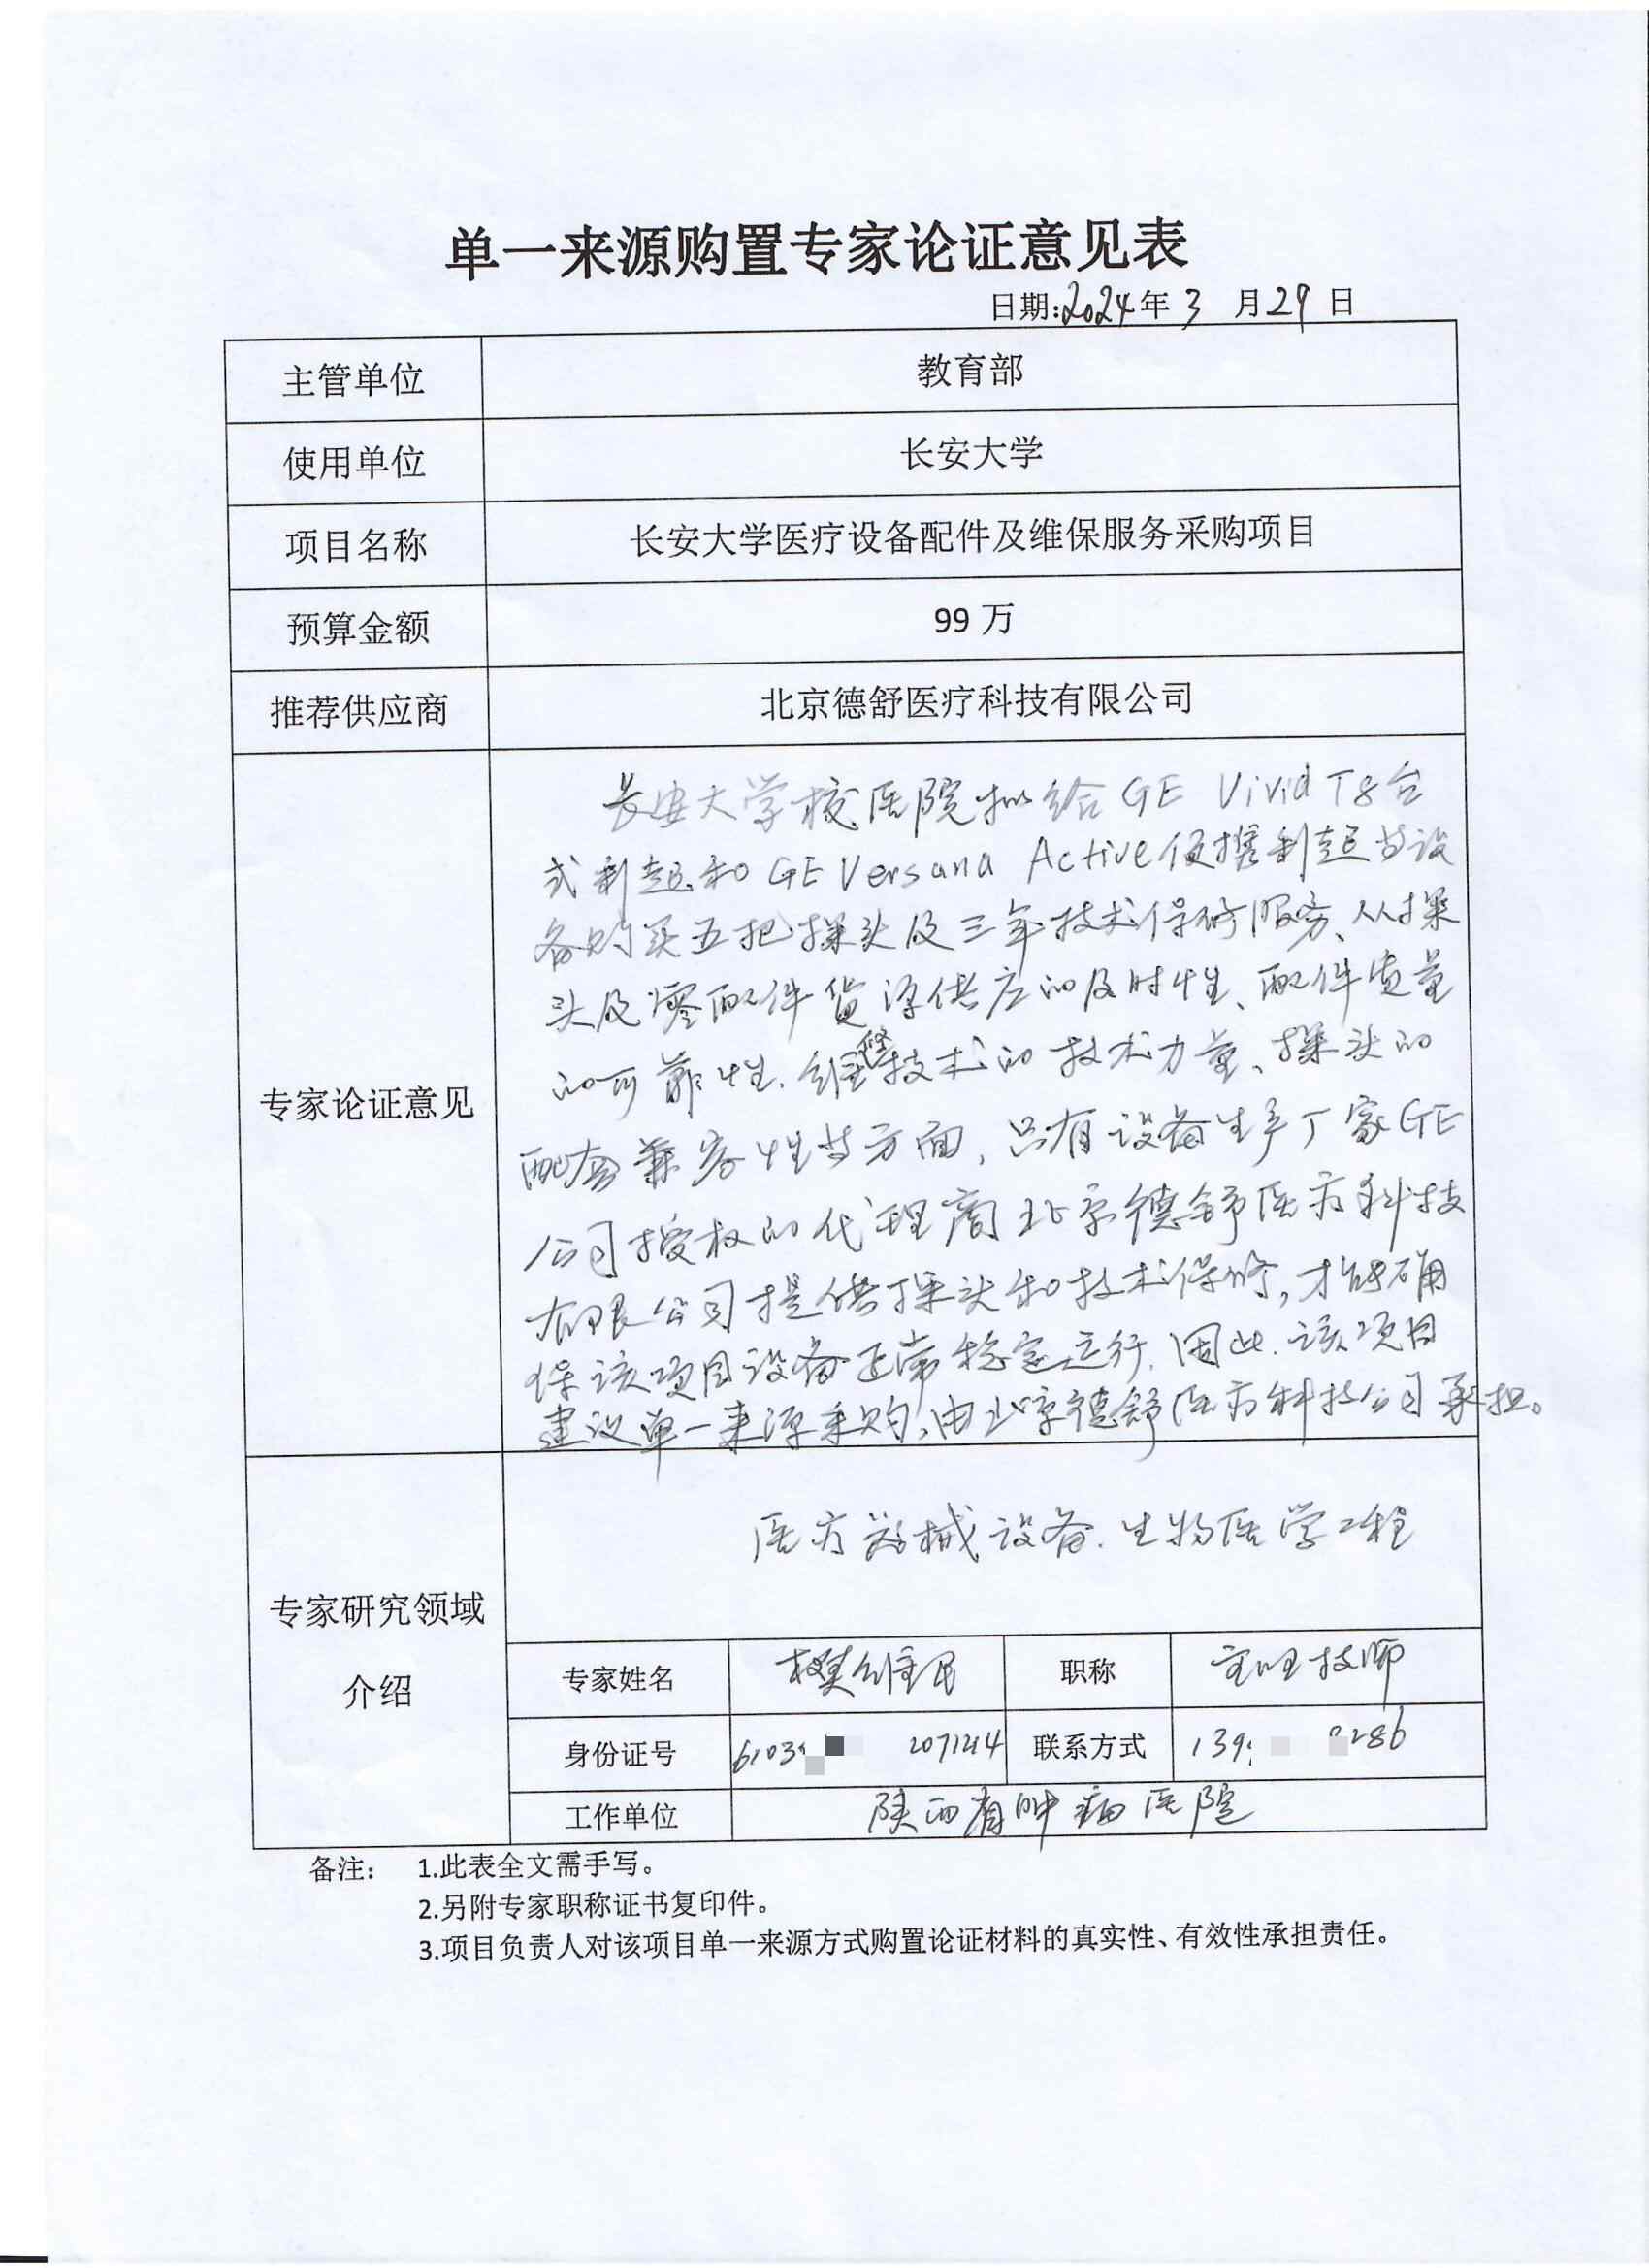 单一来源购置专家论证意见表
日期:2024年3月29日
主管单位 教育部
使用单位 长安大学
项目名称 长安大学医疗设备配件及维保服务采购项目
预算金额 99万
推荐供应商 北京德舒医疗科技有限公司
专家论证意见
长安大学校医院拟给GE Vivid T8台
式彩超和GE Versana Active便携彩超等设
备购买五把探头及三年技术保修服务、从探
头及零配件货源供应的及时性、配件质量
的可靠性.维修技术的技术力量、探头的
配套兼容性等方面,只有设备生产厂家GE
公司授权的代理商北京德舒医疗科技
有限公司提供探头和技术保修,才能确
保该项目设备正常稳定运行.因此.该项目
建议单一来源采购,由北京德舒医疗科技公司承担。
专家研究领域
介绍
医疗器械设备.生物医学工程
专家姓名 樊维民 职称 主管技师
身份证号 6103 2071214 联系方式 139 2286
工作单位 陕西省肿瘤医院
备注: 1.此表全文需手写。
2.另附专家职称证书复印件。
3.项目负责人对该项目单一来源方式购置论证材料的真实性、有效性承担责任。